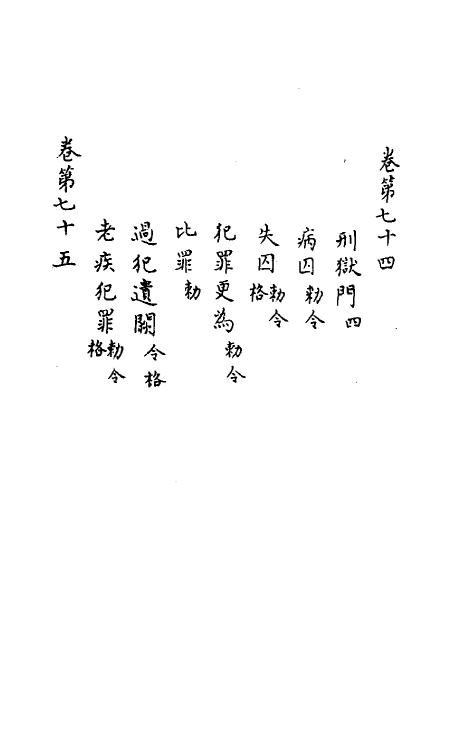 卷第七十四
刑獄門四
病囚勑令
失囚勑令格
犯罪更為勑令
比罪勑
過犯遺闕令格
老疾犯罪勑令格
卷第七十五